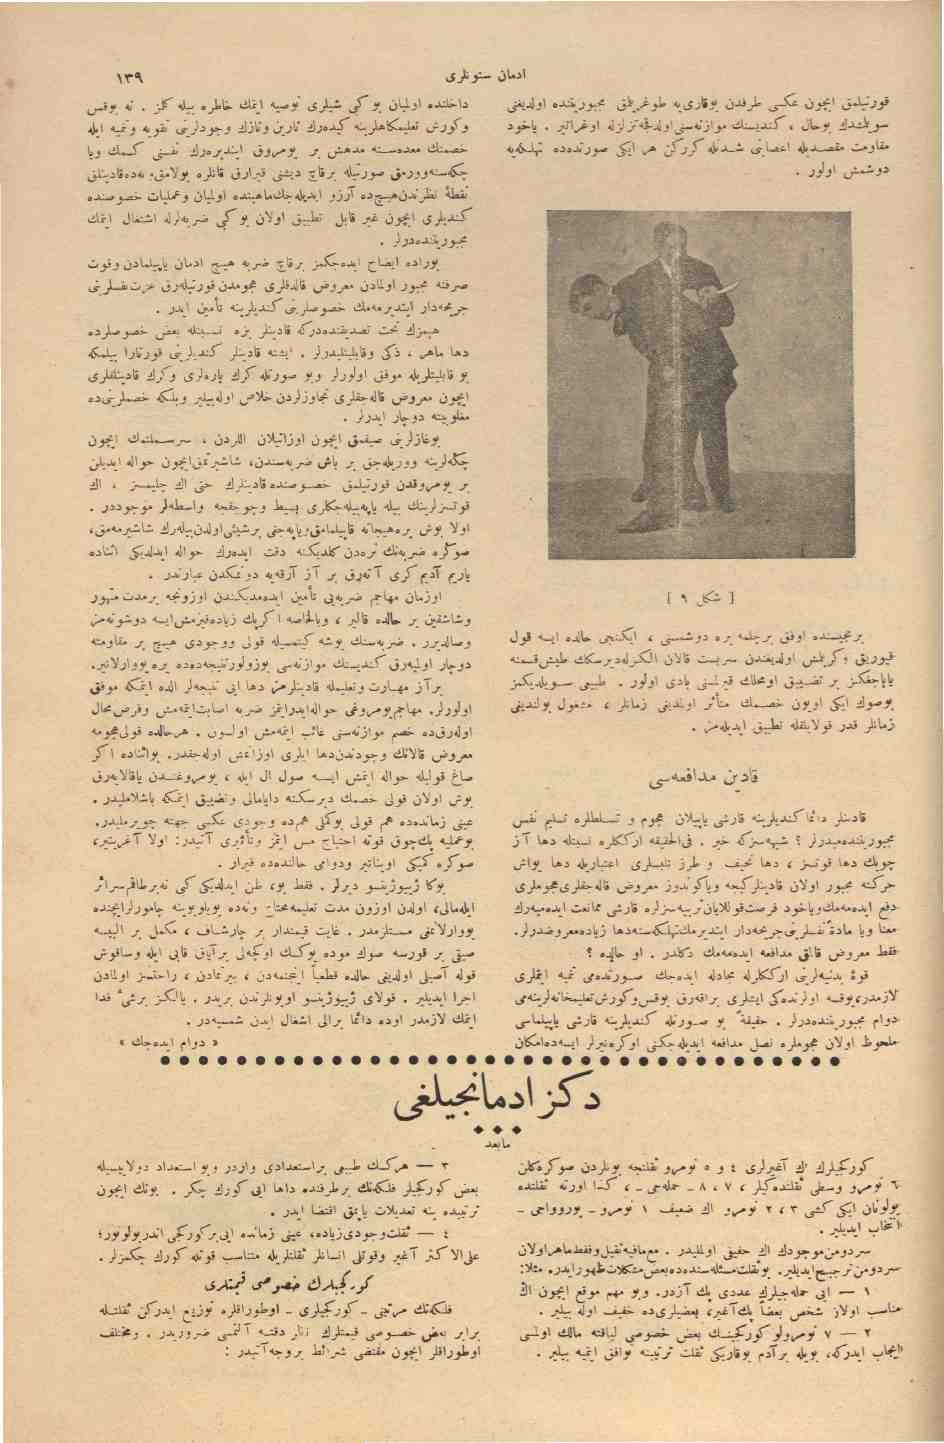 ادمان ستونلری
١٣٩
قورتيلمق ايچون عكسی طرفدن يوقاری‌يه طوغريلمق مجبوريتنده اولديغی
سويلمشدك بوحال ، كنديسنك موازنه‌سنی اولدقجه تزلزله اوغراتير . ياخود
مقاومت مقصديله اعصابنی شدتله كرركن هر ايكی صورتده‌ده تهلكه‌يه
دوشمش اولور .
[ شكل ٩ ]
برنجيسنده اوفق برچلمه يره دوشمسنی ، ايكنجی حالده ايسه قول
قيوريق وكريلمش اولديغندن سربست قالان الكزله ديرسكك طيش قسمنه
ياپاجغكز بر تضييق اومحلك قيرلمسنی بادی اولور . طبيعی سويلديكمز
بوصوك ايكی اويون خصمك متأثر اولديغی زمانلر ، مشغول بولنديغی
زمانلر قدر قولايلقله تطبيق ايديله‌مز .
قادين مدافعه‌سی
قادينلر دائما كنديلرينه قارشی ياپيلان هجوم و تسلطلره تسليم نفس
مجبوريتنده‌ميدرلر ؟ شبهه‌سزكه خير . فی‌الحقيقه ارككلره نسبتله دها آز
چويك دها قوتسز ، دها نحيف و طرز تلبسلری اعتباريله دها يواش
حركته مجبور اولان قادينلركيجه وياكوندوز معروض قاله‌جقلری‌هجوملری
دفع ايده‌مه‌مك‌وياخود فرصت‌قوللايان‌تربيه‌سزلره قارشی ممانعت ايده‌ميه‌رك
معنا ويا مادةً نفسلرينی‌جريحه‌دار ايتديرمك‌تهلكه‌سنه‌دها زياده‌معروضدرلر.
فقط معروض قالمق مدافعه ايده‌مه‌مك دكلدر . او حالده ؟
قوۀ بدنيه‌لرينی ارككلرله مجادله ايده‌جك صورتده‌می تنميه ايتملری
لازمدر، يوقسه اولرنده‌كی ايشلری براقه‌رق بوقس‌وكورش تعليمخانه‌لرينه‌می
دوام مجبوريتنده‌درلر . حقيقةً بو صورتله كنديلرينه قارشی ياپيلماسی
ملحوظ اولان هجوملره نصل مدافعه ايديله‌جكنی اوكره‌نيرلر ايسه‌ده‌امكان
داخلنده اولميان بو كبی شيلری توصيه ايتمك خاطره بيله كلمز . نه بوقس
وكورش تعليمكاهلرينه كيده‌رك نارين ونازك وجودلرينی تقويه وتنميه ايله
خصمنك معده‌سنه مدهش بر يومروق اينديره‌رك نفسنی كسمك ويا
چكه‌سنه‌وورمق صورتيله برقاچ ديشنی قيرارق قانلره بولامق، نه‌ده‌قادينلق
نقطۀ نظرندن‌هيچ‌ده آرزو ايديله‌جك‌ماهيتده اولميان وعمليات خصوصنده
كنديلری ايچون غير قابل تطبيق اولان بو كبی ضربه‌لرله اشتغال ايتمك
مجبوريتنده‌درلر .
بوراده ايضاح ايده‌جكمز برقاچ ضربه هيچ ادمان ياپيلمادن وقوت
صرفنه مجبور اولمادن معروض قالدقلری هجومدن قورتيله‌رق عزت‌نفسلرينی
جريحه‌دار ايتديرمه‌مك خصوصلرينی كنديلرينه تأمين ايدر .
هپمزك تحت تصديقنده‌دركه قادينلر بزه نسبتله بعض خصوصلرده
دها ماهر ، ذكی وقابليتليدرلر . ايشته قادينلر كنديلرينی قورتارا بيلمكه
بو قابليتلريله موفق اولورلر وبو صورتله كرك پاره‌لری وكرك قادينلقلری
ايچون معروض قاله‌جقلری تجاوزلردن خلاص اوله‌بيلير وبلكه خصملرينی‌ده
مغلوبيته دوچار ايدرلر .
بوغازلرينی صيقمق ايچون اوزاتيلان اللردن ، سرسملتمك ايچون
چكه‌لرينه ووريله‌جق بر باش ضربه‌سندن، شاشيرتمق‌ايچون حواله ايديلن
بر يومروقدن قورتيلمق خصوصنده قادينلرك حتی اك چليمسز ، اك
قوتسزلرينك بيله ياپه‌بيله‌جكلری بسيط وجوجقجه واسطه‌لر موجوددر .
اولا بوش يره‌هيجانه قاپيلمامق، وياپه‌جغی برشيئی‌اولدن‌بيله‌رك شاشيرمه‌مق،
صوكره ضربه‌نك نره‌دن كلديكنه دقت ايده‌رك حواله ايدلديكی اثناده
ياريم آديم كری آته‌رق بر آز آرقه‌يه دونمكدن عبارتدر .
اوزمان مهاجم ضربه‌يی تأمين ايده‌مديكندن اوزونجه برمدت متهور
وشاشقين بر حالده قالير ، وبالخاصه اكرپك زياده‌قيزمش‌ايسه دوشونه‌مز
وصالديرر . ضربه‌سنك بوشه كيتمسيله قولی ووجودی هيچ بر مقاومته
دوچار اولميه‌رق كنديسنك موازنه‌سی بوزولورنتيجه‌ده‌ده يره يووارلانير.
برآز مهارت وتعليمله قادينلرمز دها ايی نتيجه‌لر الده ايتمكه موفق
اولورلر. مهاجم‌يومروغی حواله‌ايدرايتمز ضربه اصابت‌ايتمه‌مش وفرض‌محال
اوله‌رق‌ده خصم موازنه‌سنی غائب ايتمه‌مش اولسون . هرحالده قولی‌هجومه
معروض قالانك وجودندن‌دها ايلری اوزانمش اوله‌جقدر. بواثناده اكر
صاغ قوليله حواله ايتمش ايسه صول ال ايله ، يومروغندن ياقالايه‌رق
بوش اولان قولی خصمك ديرسكنه دايامالی وتضييق ايتمكه باشلامليدر .
عينی زمانده‌ده هم قولی بوكملی هم‌ده وجودی عكسی جهته چويرمليدر.
بوعمليه پك‌چوق قوته احتياج مس ايتمز وتأثيری آنيدر: اولا آغريتير،
صوكره كميكی اويناتير ودوامی حالنده‌ده قيرار .
بوكا ژييوژيتسو ديرلر . فقط بو، ظن ايدلديكی كبی نه‌برطاقم‌سرائر
ايله‌مالی، اولدن اوزون مدت تعليمه‌محتاج ونه‌ده بويلوبوينه چامورلرايچنده
يووارلانمغی مستلزمدر . غايت قيمتدار بر چارشاف ، مكمل بر البيسه
صيقی بر قورسه صوك موده يوكسك اوكچه‌لی برآياق قابی ايله وسافوش
قوله آصيلی اولديغی حالده قطعياً اينجنمه‌دن ، ييرتمادن ، راحتسز اولمادن
اجرا ايديلير . قولای ژييوژيتسو اويونلرندن بريدر . يالكز برشی‌ٔ فدا
ايتمك لازمدر اوده دائما برالی اشغال ايدن شمسيه‌در .
« دوام ايده‌جك »
دكز ادمانجيلغی
مابعد
كوركجيلرك اك آغيرلری ٤ و ٥ نومرو ثقلتجه بونلردن صوكره‌كلن
٦ نومرو وسطی ثقلتده‌كيلر ، ٧ ، ٨ ـ حمله‌جی ـ ، كذا اورته ثقلتده
بولونان ايكی كشی ٣ ، ٢ نومرو اك ضعيف ١ نومرو ـ پوروواجی ـ
انتخاب ايديلير .
سردومن‌موجودك اك خفيفی اولمليدر . مع‌مافيه‌ثقيل‌وفقط‌ماهراولان
سردومن‌ترجيح‌ايديلير. بوثقلت‌مسئله‌سنده‌ده‌بعض‌مشكلات‌ظهورايدر. مثلا:
١ — ايی حمله‌جيلرك عددی پك آزدر. وبو مهم موقع ايچون اك
مناسب اولان شخص بعضاً پك‌آغير، بعضيلری‌ده خفيف اوله بيلير .
٢ — ٧ نومرولو كوركجينك بعض خصوصی لياقته مالك اولمسی
ايجاب ايدركه، بويله برآدم يوقاريكی ثقلت ترتيبنه توافق ايتميه بيلير .
٣ — هركسك طبيعی براستعدادی واردر وبو استعداد دولاييسيله
بعض كوركجيلر فلكه‌نك برطرفنده داها ايی كورك چكر . بونك ايچون
ترتيبده ينه تعديلات ياپمق اقتضا ايدر .
٤ — ثقلت‌وجودی‌زياده، عينی زمانده ايی‌بركوركجی‌اندربولونور؛
علی‌الاكثر آغير وقوتلی انسانلر ثقلتلريله متناسب قوتله كورك چكمزلر .
كوركجيلرك خصوصی قيمتلری
فلكه‌نك مرتبنی ـ كوركجيلری ـ اوطوراقلره توزيع ايدركن ثقلتله
برابر بعض خصوصی قيمتلرك نظر دقته آلنمسی ضروريدر . ومختلف
اوطوراقلر ايچون مقتضی شرائط بروجه‌آتيدر :